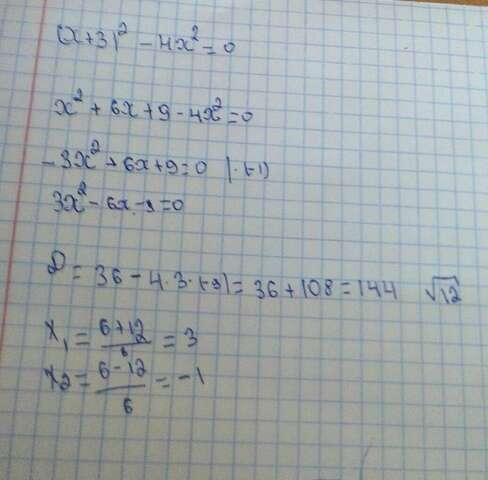 (x+3)² - 4x² = 0
x² + 6x + 9 - 4x² = 0
-3x² + 6x + 9 = 0 |·(-1)
3x² - 6x - 9 = 0
D = 36 - 4·3·(-9) = 36 + 108 = 144 √12
x₁ = (6+12)/6 = 3
x₂ = (6-12)/6 = -1